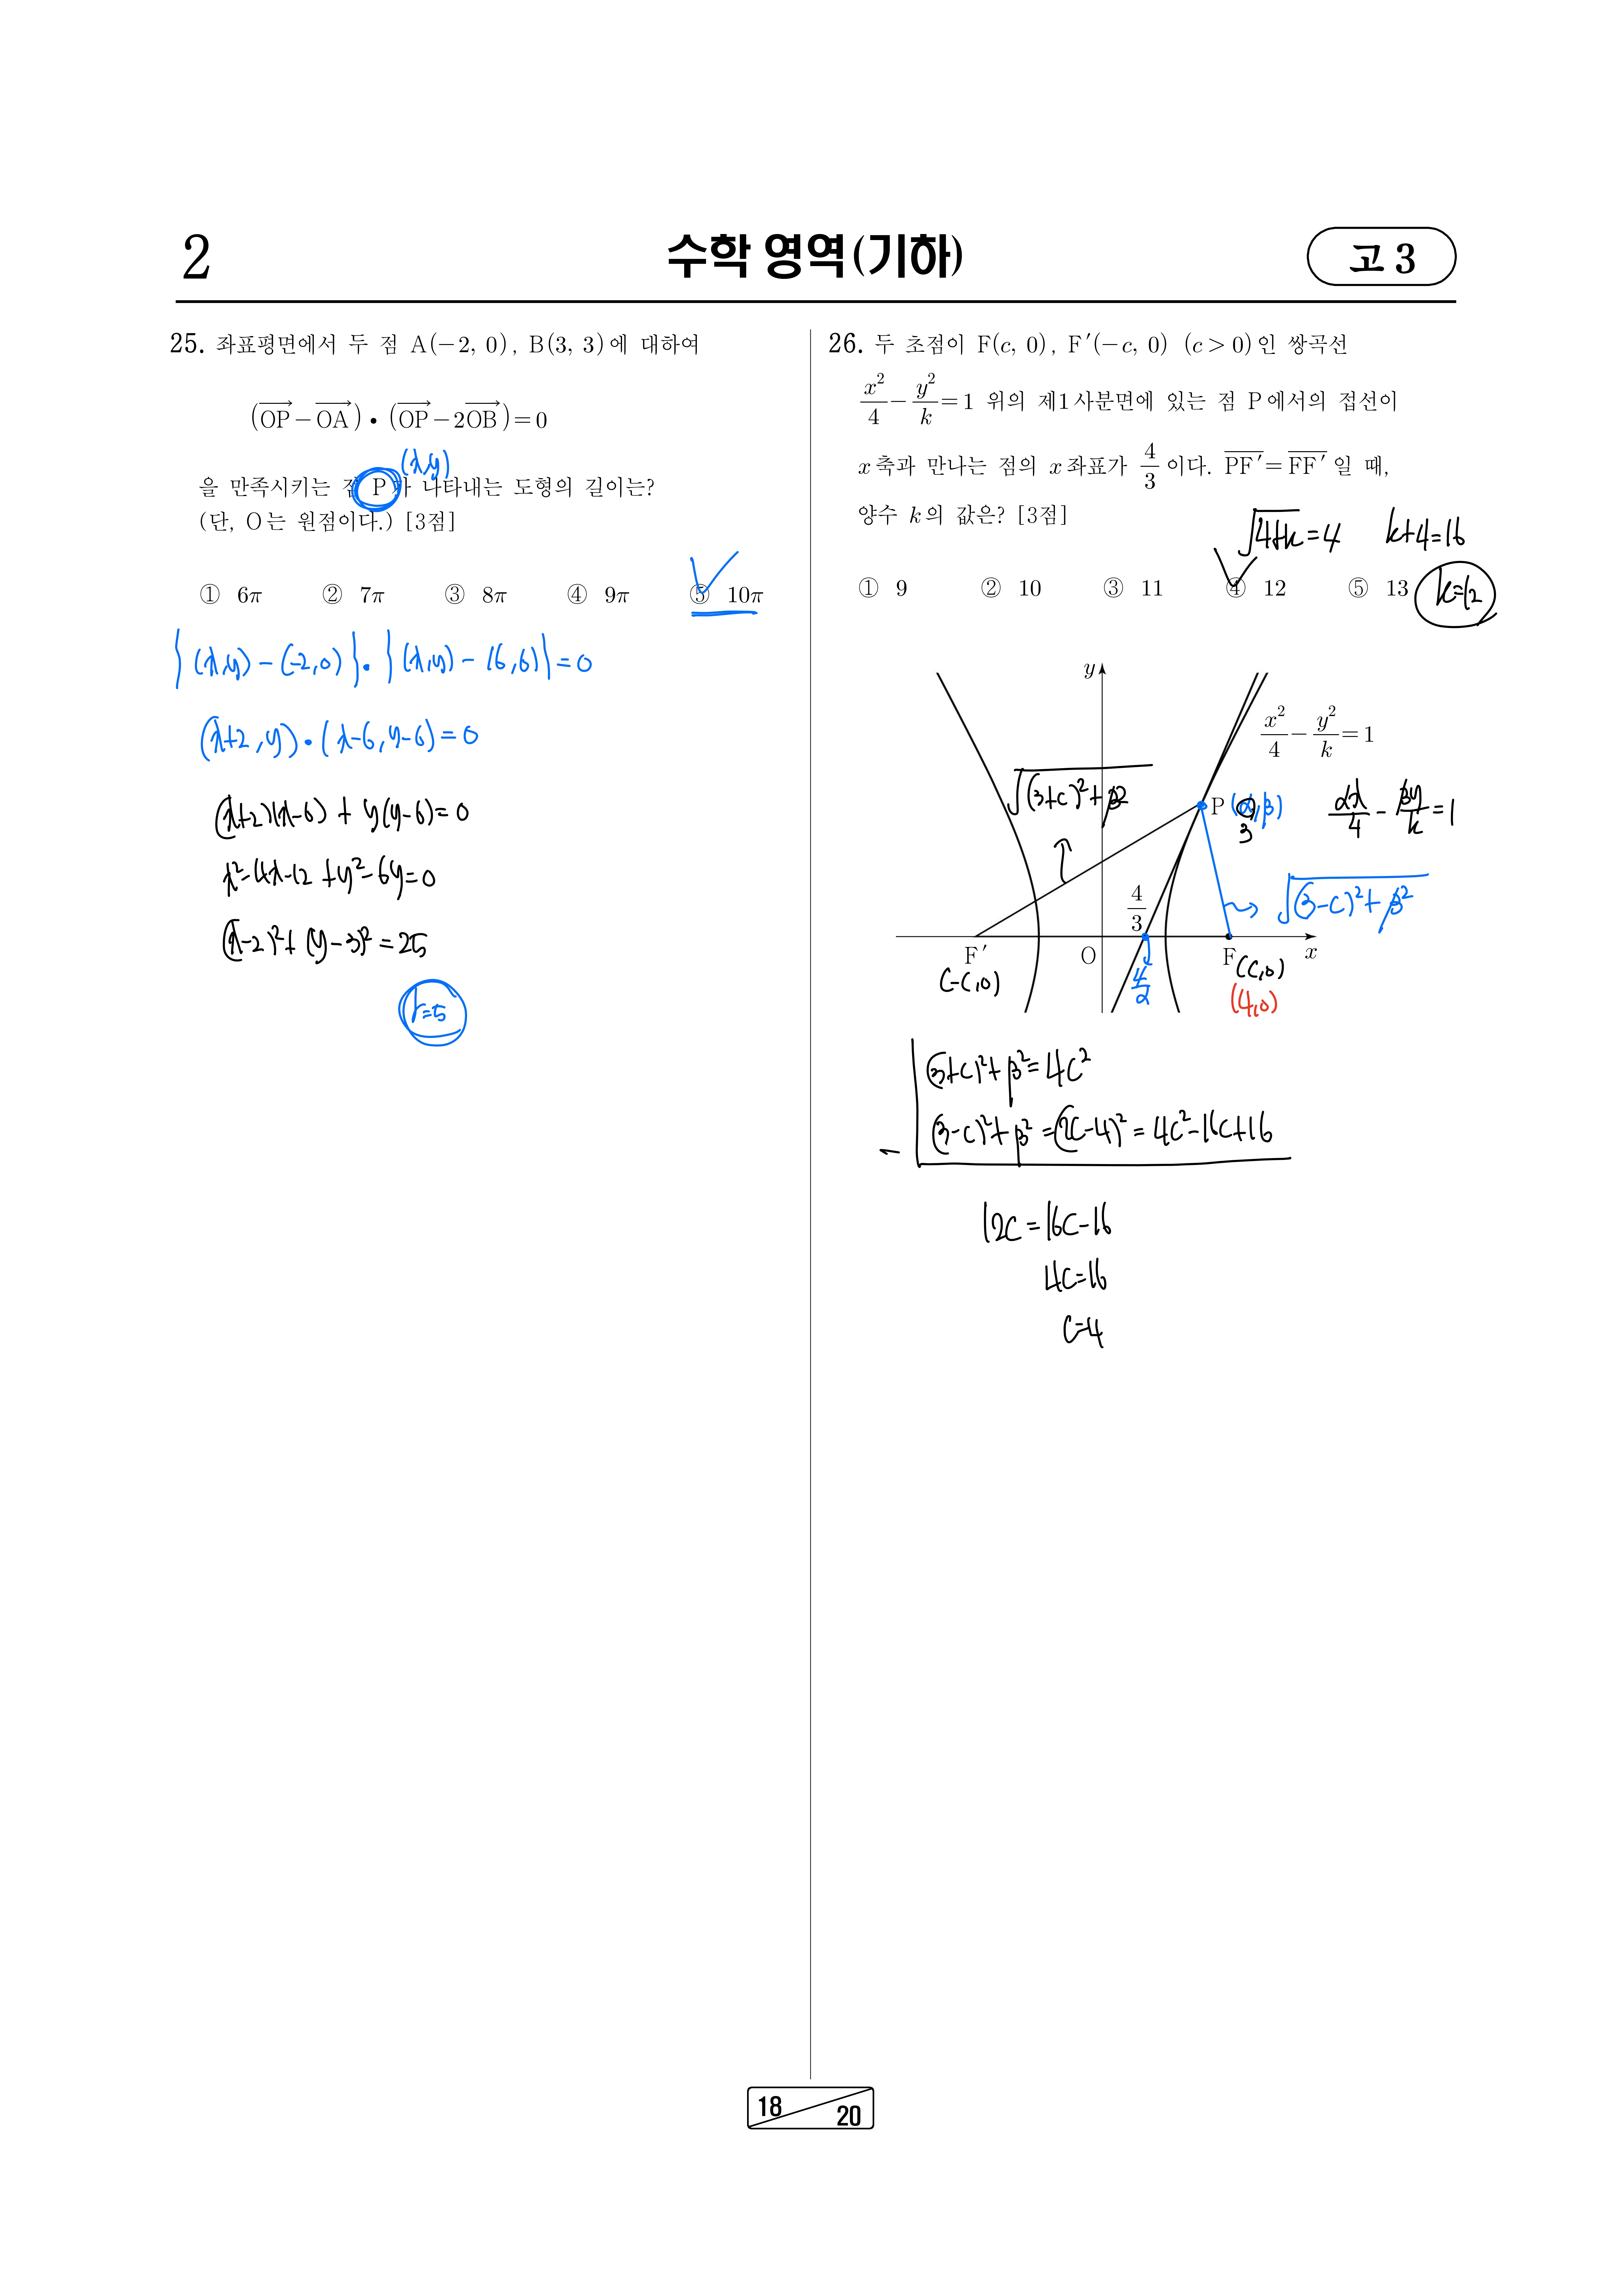 2
수학 영역(기하)
고 3
25. 좌표평면에서 두 점 A(−2, 0), B(3, 3)에 대하여
(OP−OA)•(OP−2OB)=0
(x,y)
을 만족시키는 점 P가 나타내는 도형의 길이는?
(단, O는 원점이다.) [3점]
① 6π ② 7π ③ 8π ④ 9π ⑤ 10π
{(x,y)−(−2,0)}•{(x,y)−(6,6)}=0
(x+2,y)•(x−6,y−6)=0
(x+2)(x−6)+y(y−6)=0
x²−4x−12+y²−6y=0
(x−2)²+(y−3)²=25
r=5
26. 두 초점이 F(c, 0), F′(−c, 0) (c>0)인 쌍곡선
x²/4−y²/k=1 위의 제1사분면에 있는 점 P에서의 접선이
x축과 만나는 점의 x좌표가 4/3이다. PF′=FF′일 때,
양수 k의 값은? [3점]
√(4+k)=4 k+4=16
① 9 ② 10 ③ 11 ④ 12 ⑤ 13
k=12
y
x²/4−y²/k=1
√((3+c)²+β²)
P (α,β)
3
αx/4−βy/k=1
√((3−c)²+β²)
4/3
F′ O F x
(−c,0) 4/α (c,0)
(4,0)
(3+c)²+β²=4c²
− (3−c)²+β²=(2c−4)²=4c²−16c+16
12c=16c−16
4c=16
c=4
18
20